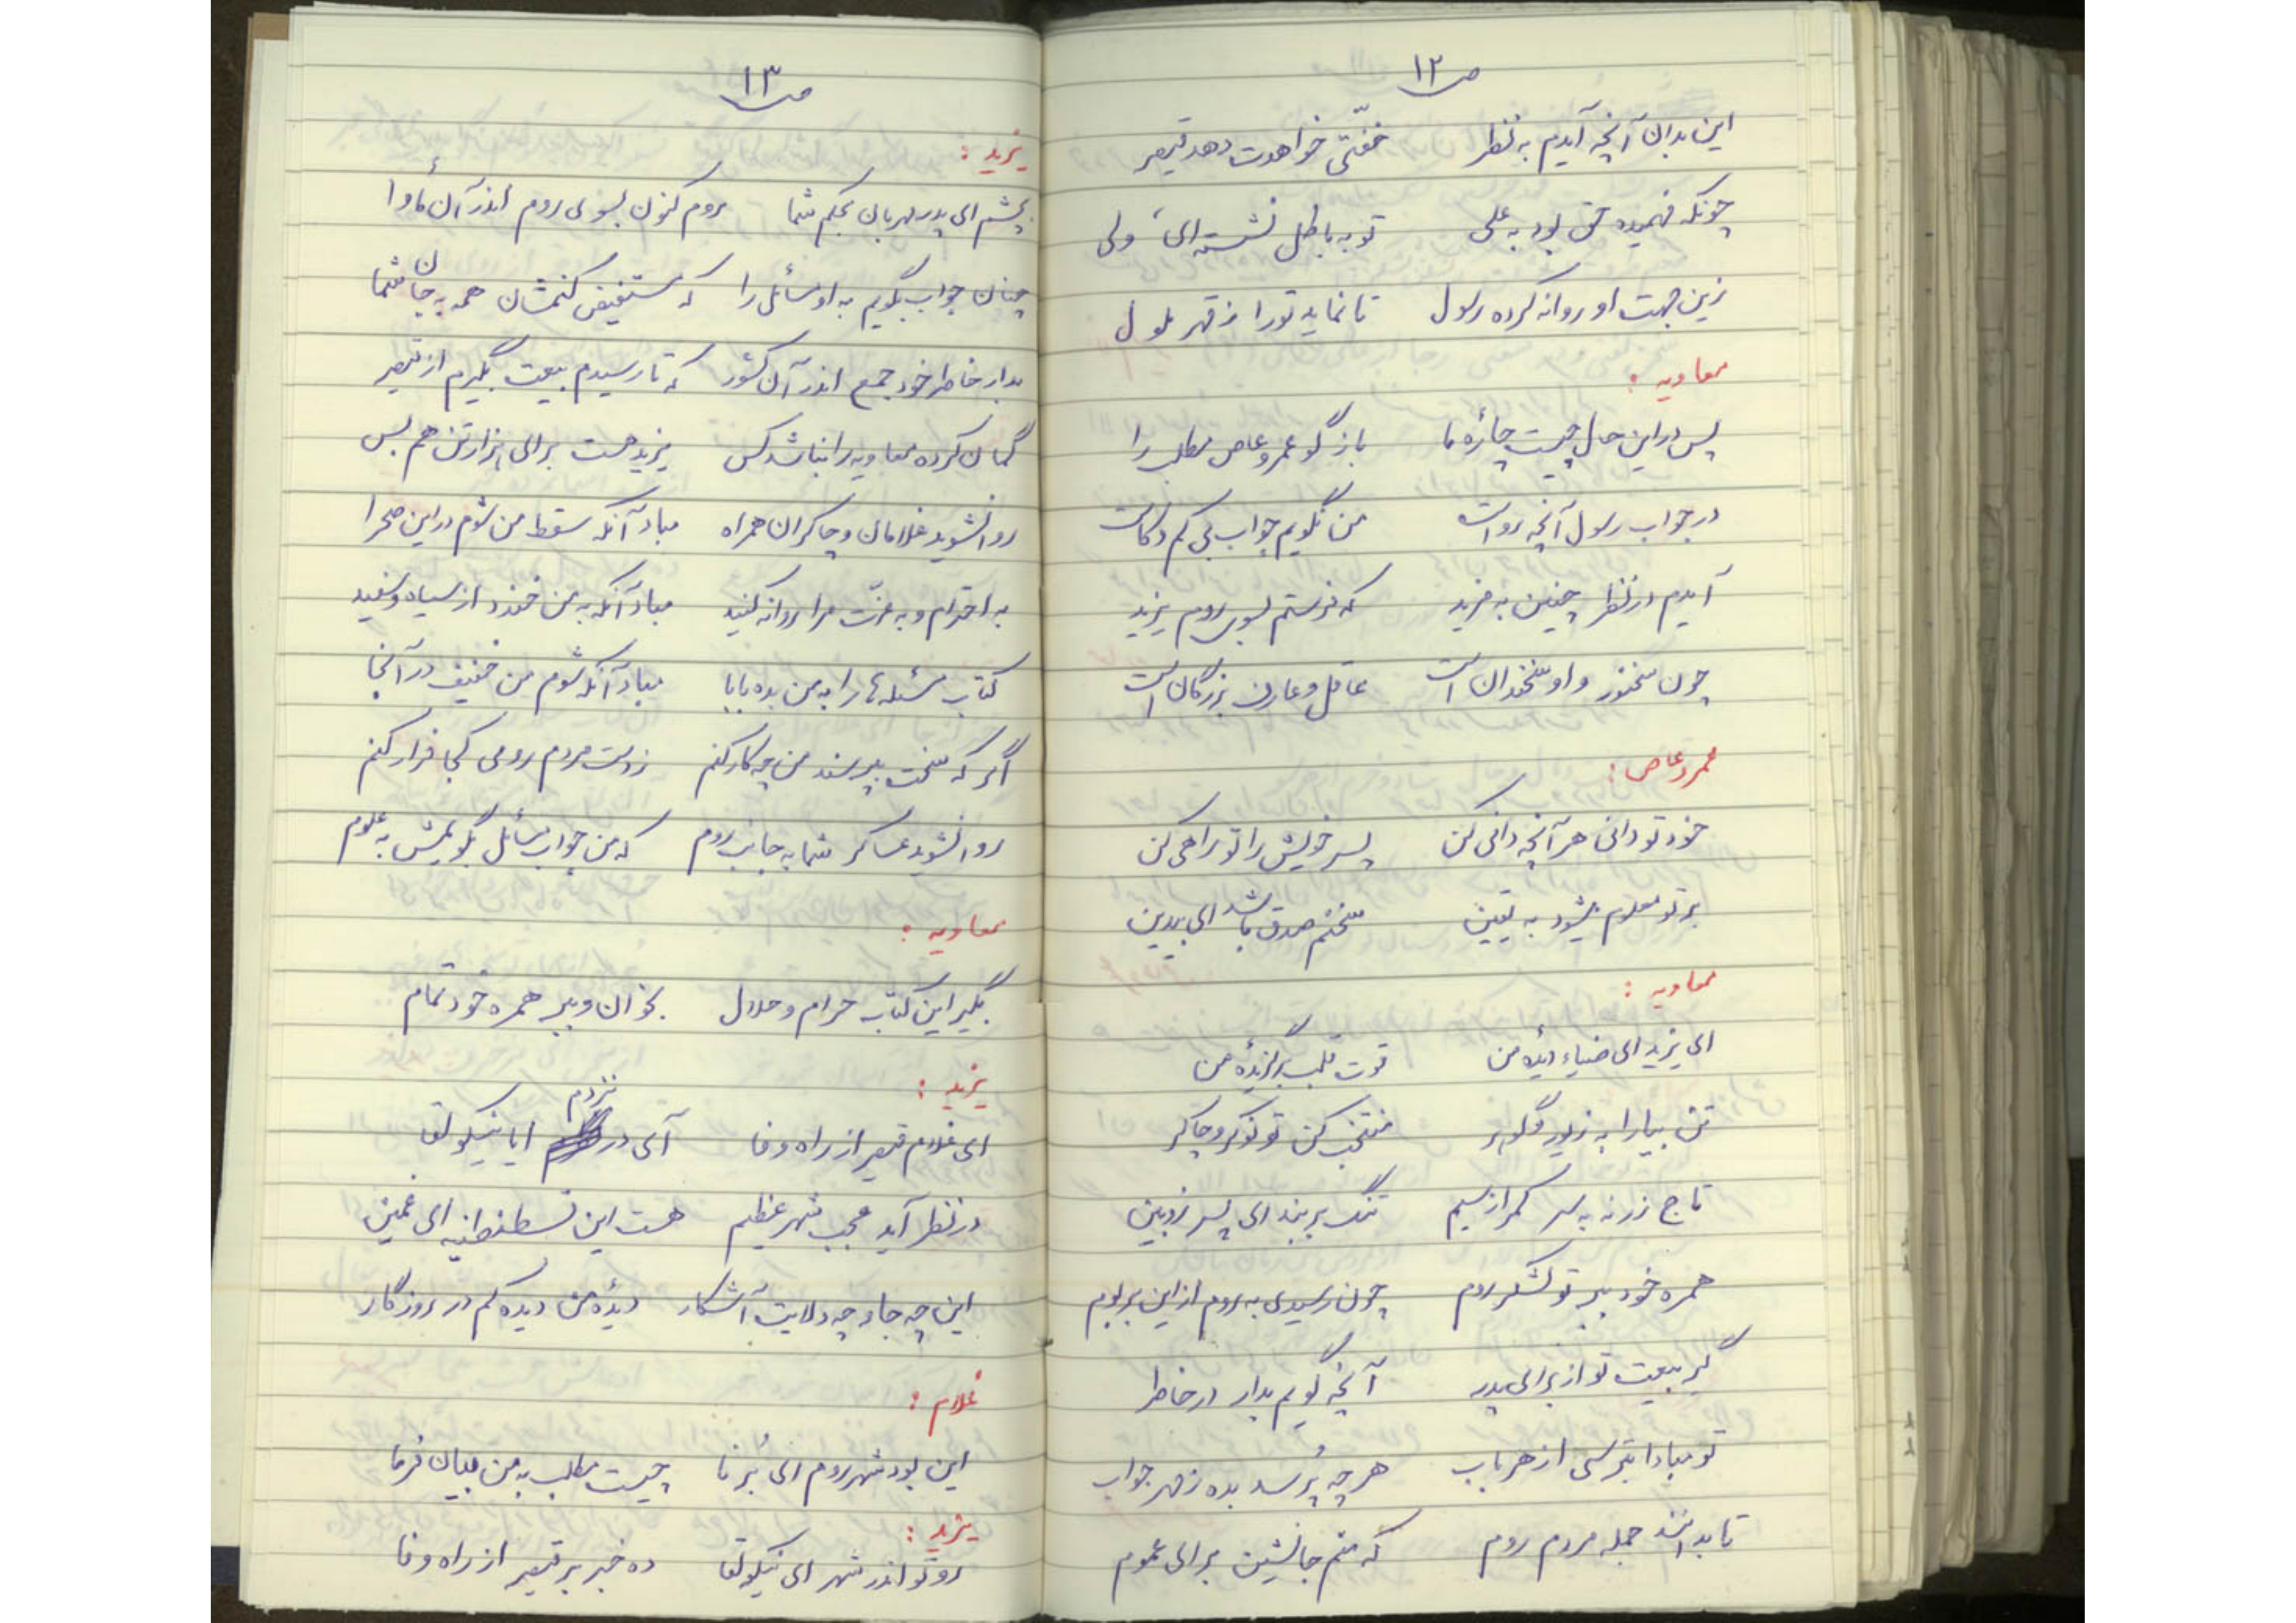 ص ۱۲
این بدان آنچه آیدم به نظر خفّتی خواهدت دهد قیصر
چونکه فهمیده حق بود به علی تو به باطل نشسته‌ای ولی
زین جهت او روانه کرده رسول تا نماید تو را ز قهر ملول
معاویه :
پس در این حال چیست چارهٔ ما بازگو عمروعاص مطلب را
در جواب رسول آنچه رواست من نگویم جواب بی کم و کاست
آیدم در نظر چنین به مزید که فرستم بسوی روم یزید
چون سخنور و او سخندان است عاقل و عارف بزرگان است
عمروعاص :
خود تو دانی هر آنچه دانی کن پسر خویش را تو راهی کن
بر تو معلوم میشود به یقین سخنم صدق باشد ای بیدین
معاویه :
ای یزید ای ضیاء دیدهٔ من قوت قلب برگزیدهٔ من
تن بیارا به زیور و گوهر منتخب کن تو نوکر و چاکر
تاج زر نه به سر کمر از سیم تنگ بر بند ای پسر زوبین
همره خود ببر تو لشکر روم چون رسیدی به روم از این بر بوم
گیر بیعت تو از برای پدر آنچه گویم بدار در خاطر
تو مبادا بترسی از هر باب هر چه پُرسد بده ز مهر جواب
تا بدانند جمله مردم روم که منم جانشین برای عموم
ص ۱۳
یزید :
بچشم ای پدر مهربان بحکم شما روم کنون بسوی روم اندر آن مأوا
چنان جواب بگویم به او مسائل را که مستفیض کنمشان همه به جان شما
بدار خاطر خود جمع اندر آن کشور که تا رسیدم بیعت بگیرم از قیصر
گمان کرده معاویه را نباشد کس یزید هست برای هزار تن هم بس
روان شوید غلامان و چاکران همراه مباد آنکه سقط من شوم در این صحرا
به احترام و به عزّت مرا روانه کنید مباد آنکه به من خندد از سیاه و سفید
کتاب مسئله‌ها را به من بده بابا مباد آنکه شوم من خفیف در آنجا
اگر که سخت بپرسند من چه کار کنم ز دست مردم رومی کجا فرار کنم
روان شوید عساکر شما به جانب روم که من جواب مسائل بگویمش به علوم
معاویه :
بگیر این کتاب حرام و حلال بخوان و ببر همره خود تمام
یزید :
ای غلام قیصر از راه وفا آی در نزدم ایا نیکو لقا
در نظر آید عجب شهر عظیم هست این قسطنطنیه ای غمین
این چه جا و چه ولایت آشکار دیدهٔ من دیده کم در روزگار
غلام :
این بود شهر روم ای بُرنا چیست مطلب به من بیان فرما
یزید :
رو تو اندر شهر ای نیکو لقا ده خبر بر قیصر از راه وفا